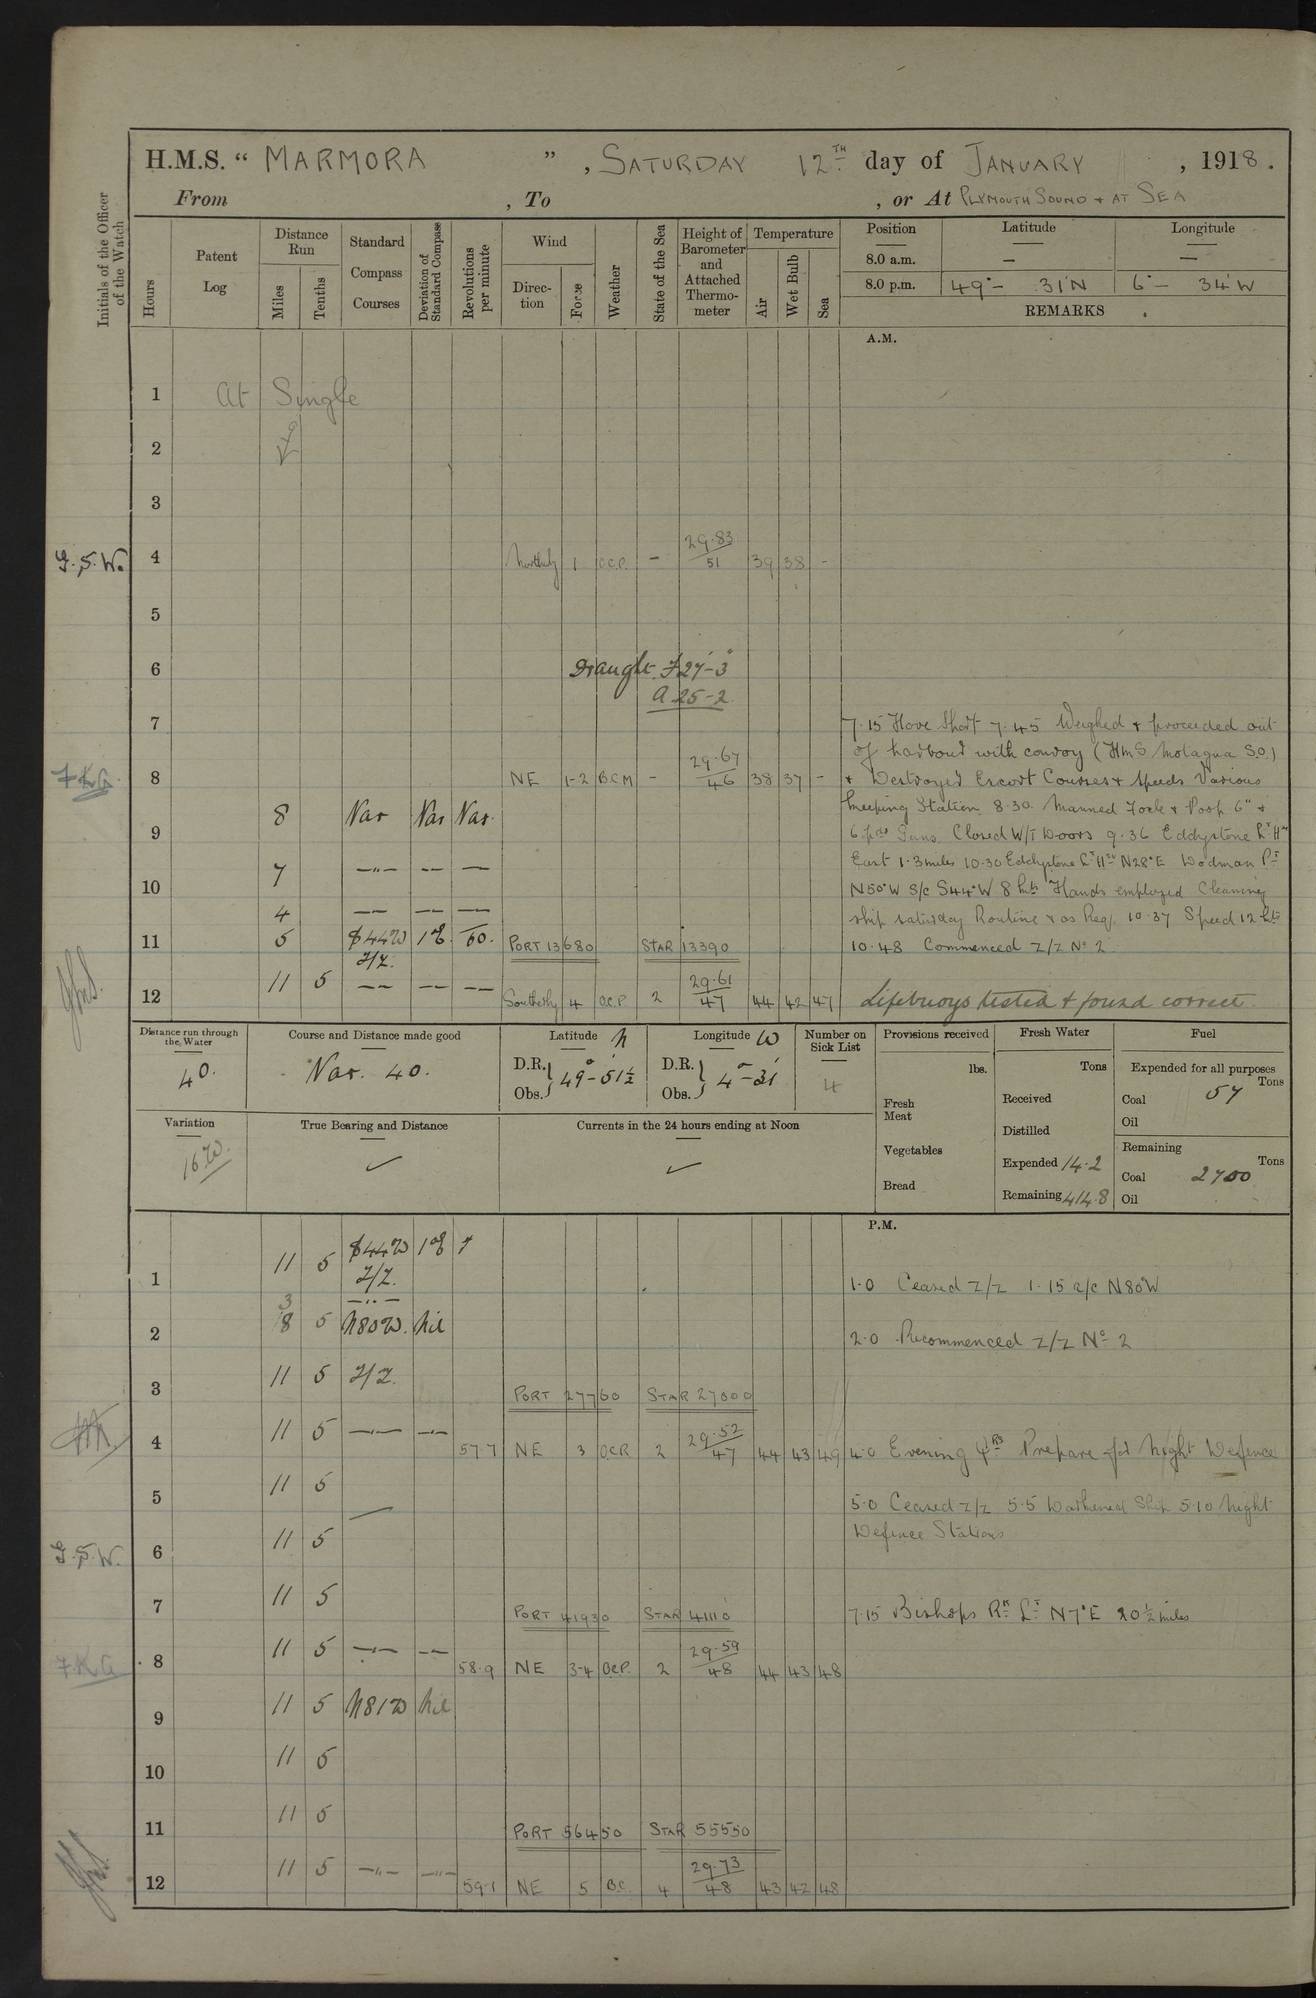 H.M.S. “ MARMORA ” , SATURDAY 12TH day of JANUARY , 1918 .
From , To , or At PLYMOUTH SOUND + AT SEA
Initials of the Officer of the Watch
Hours
Patent Log
Distance Run
Miles
Tenths
Standard Compass Courses
Deviation of Standard Compass
Revolutions per minute
Wind
Direction
Force
Weather
State of the Sea
Height of Barometer and Attached Thermometer
Temperature
Air
Wet Bulb
Sea
Position Latitude Longitude
8.0 a.m. — —
8.0 p.m. 49° - 31'N 6° - 34'W
REMARKS
A.M.
1 At Single
2
3
G.S.W. 4 Northerly 1 O.C.P. - 29.83 / 51 39 38 -
5
6 Draught F 27'-3"
A 25-2
7 7.15 Hove Short 7.45 Weighed + proceeded out
of harbour with convoy (HMS Motagua S.O.)
8 NE 1-2 B.C.M - 29.67 / 46 38 37 - + Destroyer Escort Courses + speeds Various
8 Var Var Var. keeping Station 8.30 Manned Focle + Poop 6" +
9 6 pdr Guns. Closed W/T Doors 9.36 Eddystone Lt Hse
7 —"— — — East 1.3 miles 10.30 Eddystone Lt Hse N28°E Dodman Pt
10 N50°W S/c S44°W 8 kts Hands employed Cleaning
4 —— —— — ship saturday Routine + as Req. 10.37 Speed 12 kts
11 5 S44W 1°E 60. PORT 13680 STAR 13390 10.48 Commenced Z/Z No 2
Z/Z.
12 11 5 —— —— —— Southerly 4 O.C.P 2 29.61 / 47 44 42 47 Lifebuoys tested + found correct
Distance run through the Water
40.
Course and Distance made good
Var. 40.
Latitude N
D.R. } 49° - 51½
Obs.
Longitude W
D.R. } 4° - 31'
Obs.
Number on Sick List
4
Provisions received
lbs.
Fresh Meat
Vegetables
Bread
Fresh Water
Tons
Received
Distilled
Expended 14.2
Remaining 414.8
Fuel
Expended for all purposes
Tons
Coal 57
Oil
Remaining
Tons
Coal 2700
Oil
Variation
16W.
True Bearing and Distance
Currents in the 24 hours ending at Noon
P.M.
1 11 5 S44W 1°E
Z/Z. 1.0 Ceased Z/Z 1.15 a/c N80°W
3 —..—
2 8 5 N80W. Nil 2.0 Recommenced Z/Z No 2
3 11 5 Z/Z. PORT 27760 STAR 27000
4 11 5 —"— —"— 57.7 NE 3 OCR 2 29.52 / 47 44 43 49 4.0 Evening Qrs Prepare for Night Defence
5 11 5 5.0 Ceased Z/Z 5.5 Darkened Ship 5.10 Night
Defence Stations
G.S.W. 6 11 5
7 11 5 PORT 41930 STAR 41110 7.15 Bishops Rk Lt N7°E 20½ miles
8 11 5 —"— —— 58.9 NE 3-4 BCP. 2 29.59 / 48 44 43 48
9 11 5 N81W Nil
10 11 5
11 11 5 PORT 56450 STAR 55550
12 11 5 —"— —"— 59.1 NE 5 B.C. 4 29.73 / 48 43 42 48